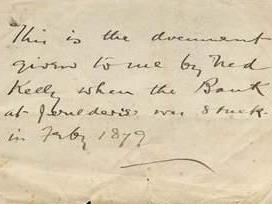 This is the document
given to me by Ned
Kelly when the Bank
at Jerilderie was stuck
in Feby 1879